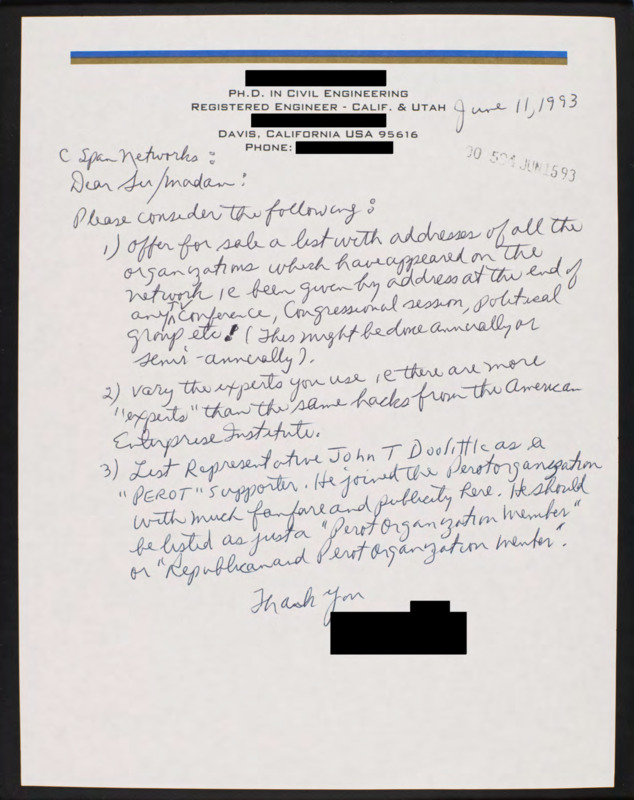 Ph.D. in Civil Engineering
Registered Engineer - Calif. & Utah
June 11, 1993
Davis, California USA 95616
Phone:
JUN 15 93
C Span Networks:
Dear Sir/Madam:
Please consider the following:
1) Offer for sale a list with addresses of all the
organizations which have appeared on the
network, ie been given by address at the end of
any TV conference, Congressional session, political
group etc! (This might be done annually or
semi-annually).
2) Vary the experts you use, ie there are more
"experts" than the same hacks from the American
Enterprise Institute.
3) List Representative John T Doolittle as a
"PEROT" supporter. He joined the Perot organization
with much fanfare and publicity here. He should
be listed as just a "Perot Organization Member"
or "Republican and Perot Organization member".
Thank You